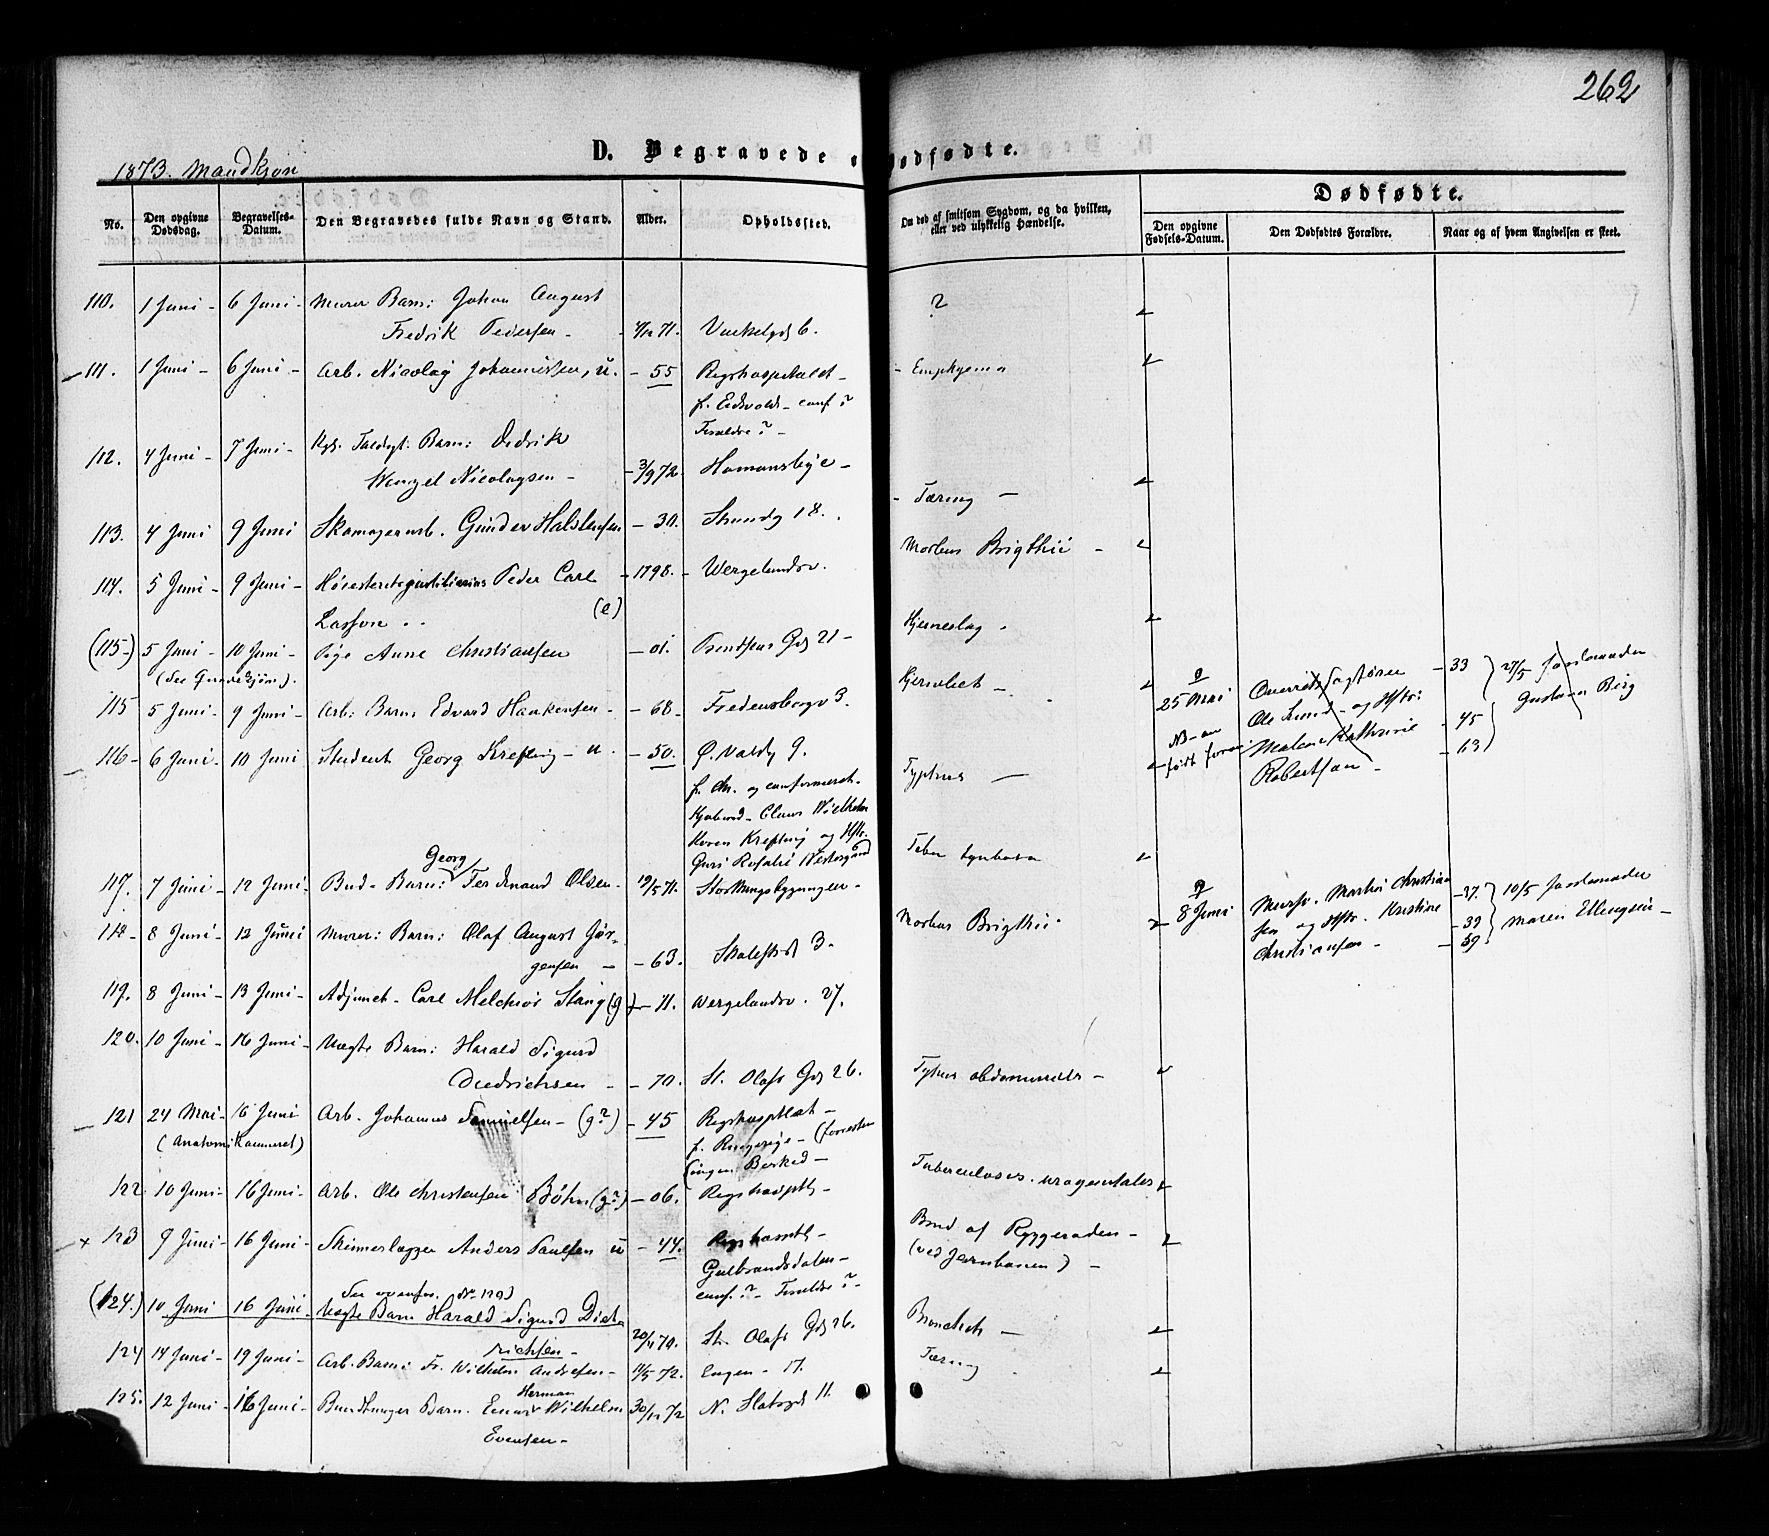 262
D. Begravede o
Dødfødte.
1873. Mandkjøn
No.
Den opgivne Dødsdag.
Begravelses-Datum.
Den Begravedes fulde Navn og Stand.
Alder.
Opholdssted.
Om død af smitsom Sygdom, og da hvilken, eller ved ulykkelig Hændelse.
Dødfødte.
Den opgivne Fødsels-Datum.
Den Dødfødtes Forældre.
Naar og af hvem Angivelsen er skeet.
110. 1 Juni - 6 Juni - Murer Barn: Johan August
Fredrik Pedersen - 71. 6. ?
111. 1 Juni - 6 Juni - Arb. Nicolay Johannessen, u. - 55 Rigshospitalet - Emphyema
f. Eidsvold - conf ?
Foreldre ? -
112. 4 Juni - 7 Juni - Barn: Didrik
Wenzel Nicolaysen - 3/9 72. Homansbye -
Tæring -
113. 4 Juni 9 Juni Skomagerarb. Gunder Halstensen - 30. Strandg 18. Morbus Brigthii -
114. 5 Juni - 9 Juni - Høiesteretsjustitiarius Peder Carl - 1798. - Wergelandsv.
Lasson (e) Hjerneslag.
(115-) 5 Juni - 10 Juni - Pige Anne Christiansen - 01. Gd 21 -
(see Qvindekjøn).
115 5 Juni - 9 Juni - Arb: Barn Edvard Haakensen - - 68 - Fredensborgv 3.
25 Mai Ole Lund - og Hstr: Malene Kathrine Robertsen - - 33 - 45 - 63 27/5 Jordemoder Gustava Berg
116 - 6 Juni - 10 Juni Student Georg Krefting - u. - 50. Ø. Voldg 9. Typhus -
f. Chr. og confirmeret.
Claus Wilhelm
Koren Krefting og Hstr.
Guri Rosalie Westergaard
117. 7 Juni - 12 Juni - Bud - Barn: Georg Ferdinand Olsen - 19/5 71. Storthingsbygningen -
118 - 8 Juni - 12 Juni Murer: Barn: Olaf August Jør-
gensen - - 63. 3 - Morbus Brigthii
8 Juni Murer. Martin Christian
sen og Hstr. Kristine
Christiansen - - 37. - 39 - 59 10/5 Jordemoder
Maren Ellingsen -
119. 8 Juni - 13 Juni - Adjunct - Carl Melchior Stang (g) - 11. Wergelandsv. 27.
120. 10 Juni - 16 Juni - Vægte Barn: Harald Sigurd
Diedrichsen - - 70. St. Olafs Gd 26. Typhus abdominalis -
121 24 Mai - 16 Juni Arb. Johannes Samuelsen - (g?) - 45 Rigshospitalet -
(Anatomikammeret) f. Ringerige - (forresten
ingen Besked -
122 10 Juni - 16 Juni - Arb. Ole Christensen Bøhn (g?) - 06. Rigshospitl - Tuberculosis urogenitales
123 9 Juni - 16 Juni - Skinnelægger Anders Paulsen u - 44. Rigshospitl - Brud af Ryggeraden -
Gulbrandsdalen - (ved Jernbanen) -
conf. ? - Foreldre ? -
(124.) 10 Juni 16 Juni - Vægte Barn Harald Sigurd Died-
See ovenfor. No. 120)
richsen - 20/4 70. St. Olafs Gd 26. Bronchit -
124 14 Juni - 19 Juni - Arb. Barn: Fr. Wilhelm Andresen - 11/5 72. Engen - 17. Tæring
125. 12 Juni - 16 Juni - Barn. Einar Herman Wilhelm 30/12 72 N. Slotsgd 11.
Evensen -